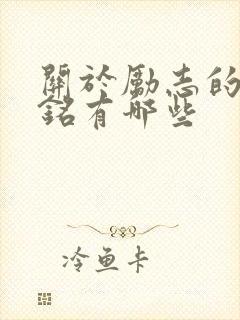 關於勵志的
銘有哪些
冷魚卡